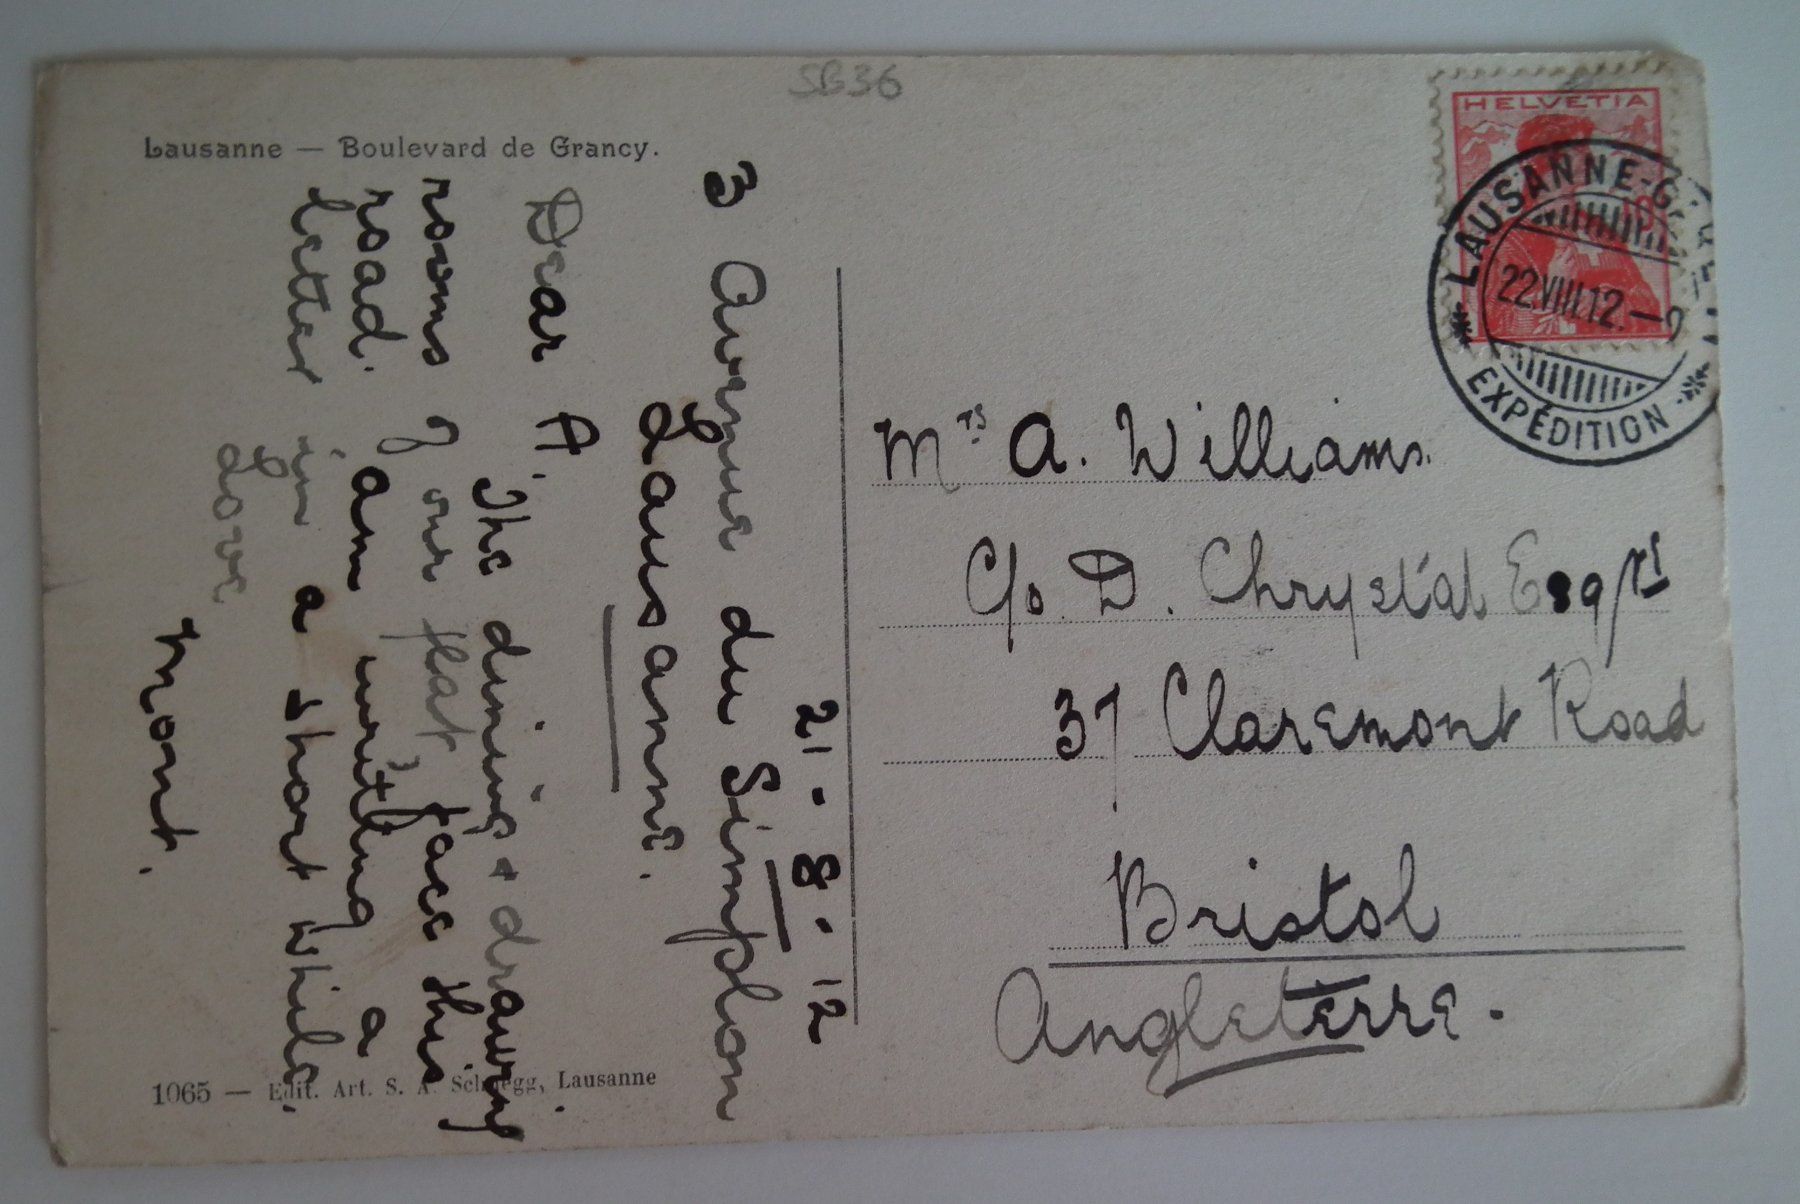 SB36
Lausanne — Boulevard de Grancy.
HELVETIA
10
LAUSANNE-
22.VIII.12.—
EXPÉDITION
21 - 8 - 12
3 Avenue du Simplon
Lausanne.
Dear A.
The dining & drawing
rooms of our flat face this
road. I am writing a
letter in a short while.
Love
Mont.
Mrs A. Williams.
C/o D. Chrystal Esqre
37 Claremont Road
Bristol
Angleterre.
1065 — Edit. Art. S. A. Schnegg, Lausanne